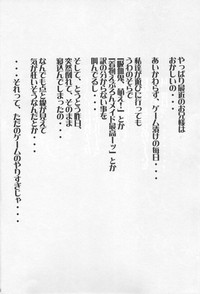 やっぱり最近のお兄様は
おかしいの。
あいかわらず、ゲーム漬けの毎日・・・
私達が遊びに行っても
うわのそらで
とか
とか
訳の分からない事を
叫んでるし・・・
そして、とうとう昨日、
突然倒れて、そのまま
寝込んでしまったの・・・
なんでも点と線が見えて
気が狂いそうなんだとか・・・
・・・それって、ただのゲームのやりすぎじゃ・・・